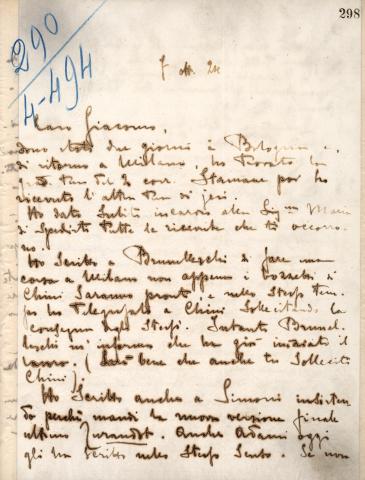 298
290
4-494
7 ott. 24
Caro Giacomo,
sono stato due giorni a Bologna e,
di ritorno a Milano, ho trovato la
tua del 2 corr. Stamane poi ho
ricevuto l'altra tua di jeri.
Ho dato subito incarico alla Sig.na Maria
di spedirti tutte le ricevute che ti occorro-
no.
Ho scritto a Brunelleschi di fare una
corsa a Milano non appena i bozzetti di
Chini saranno pronti, e nello stesso tem-
po ho telegrafato a Chini sollecitando la
consegna degli stessi. Intanto Brunel-
leschi m'informa che ha già iniziato il
lavoro. (Sarà bene che anche tu solleciti
Chini).
Ho scritto anche a Simoni insisten-
do perchè mandi la nuova versione finale
ultimo Turandot. Anche Adami oggi
gli ha scritto nello stesso senso. Se non